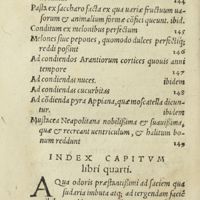 144
Pasta ex saccharo facta ex qua variæ fructuum va-
sorum & animalium formæ cōfici queunt. ibid.
Conditum ex melonibus perfectum 145
Melones siue pepones, quomodo dulces perfectiq;
reddi possint 146
Ad condiendos Arantiorum cortices quouis anni
tempore 147
Ad condiendas nuces. ibidem
Ad condiendas cucurbitas 148
Ad cōdienda pyra Appiana, quæ moscatella dicun-
tur. ibidem
Mustacea Neapolitana nobilissima & suauissima,
quæ & recreant ventriculum, & halitum bo-
num reddunt 149
INDEX CAPITVM
libri quarti.
AQua odoris præstantissimi ad faciem qua
sudaria imbuta atq; ad tergendam facie